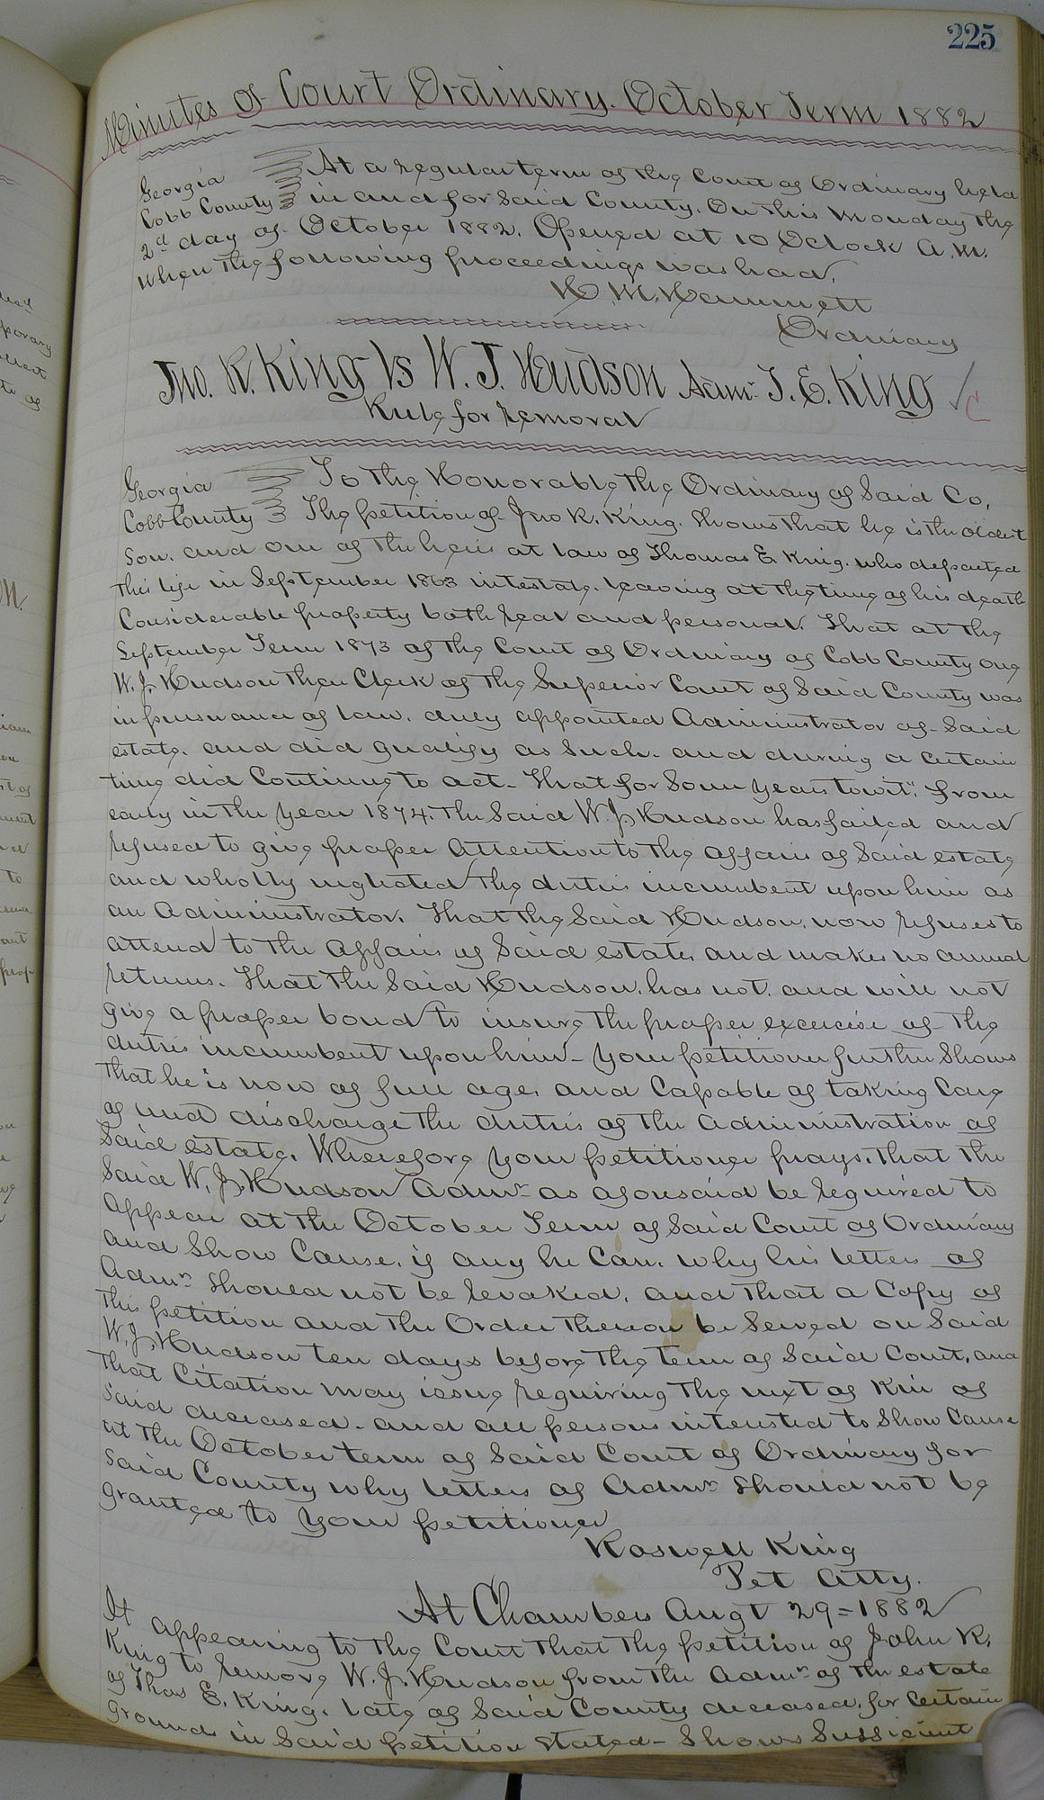 225
Minutes of Court Ordinary. October Term 1882
Georgia At a regular term of the Court of Ordinary held
Cobb County in and for Said County. On this Monday the
2d day of October 1882. Opened at 10 Oclock A.M.
when the following proceedings was had.
H. M. Hammett
Ordinary
Jno. R. King Vs W. J. Hudson Admr. T. E. King
Rule for removal
Georgia To the Honorable the Ordinary of Said Co,
Cobb County The petition of Jno R. King. Shows that he is the oldest
Son. and one of the heirs at law of Thomas E. King. who departed
this life in September 1863 intestate. leaving at the time of his death
Considerable property both real and personal. That at the
September Term 1873 of the Court of Ordinary of Cobb County one
W. J. Hudson then Clerk of the Superior Court of Said County was
in pursuance of law. duly appointed Administrator of Said
estate. and did qualify as Such. and during a certain
time did Continue to act. That for Some years towit: from
early in the year 1874. the Said W. J. Hudson has failed and
refused to give proper attention to the affairs of Said estate
and wholly neglected the duties incumbent upon him as
an Administrator. That the Said Hudson. now refuses to
attend to the affairs of Said estate, and makes no annual
returns. That the Said Hudson. has not. and will not
give a proper bond to insure the proper excercise of the
duties incumbent upon him - Your petitioner further Shows
that he is now of full age, and Capable of taking Care
of and discharge the duties of the administration of
Said estate. Wherefore your petitioner prays. that the
Said W. J. Hudson Admr. as aforesaid be required to
appear at the October Term of Said Court of Ordinary
and Show Cause, if any he Can. why his letters of
Admn. Should not be revoked. and that a Copy of
this petition and the Order thereon be Served on Said
W. J. Hudson ten days before the term of Said Court, and
that Citation may issue requiring the next of Kin of
Said deceased. and all persons intersted to Show Cause
at the October term of Said Court of Ordinary for
Said County why letters of Admn. Should not be
granted to your petitioner
Roswell King
Pet Atty.
At Chambers Augt 29=1882
It appearing to the Court that the petition of John R.
King to remove W. J. Hudson from the Admn. of the estate
of Thos E. King. late of Said County deceased. for certain
grounds in Said petition stated - Shows Sufficient